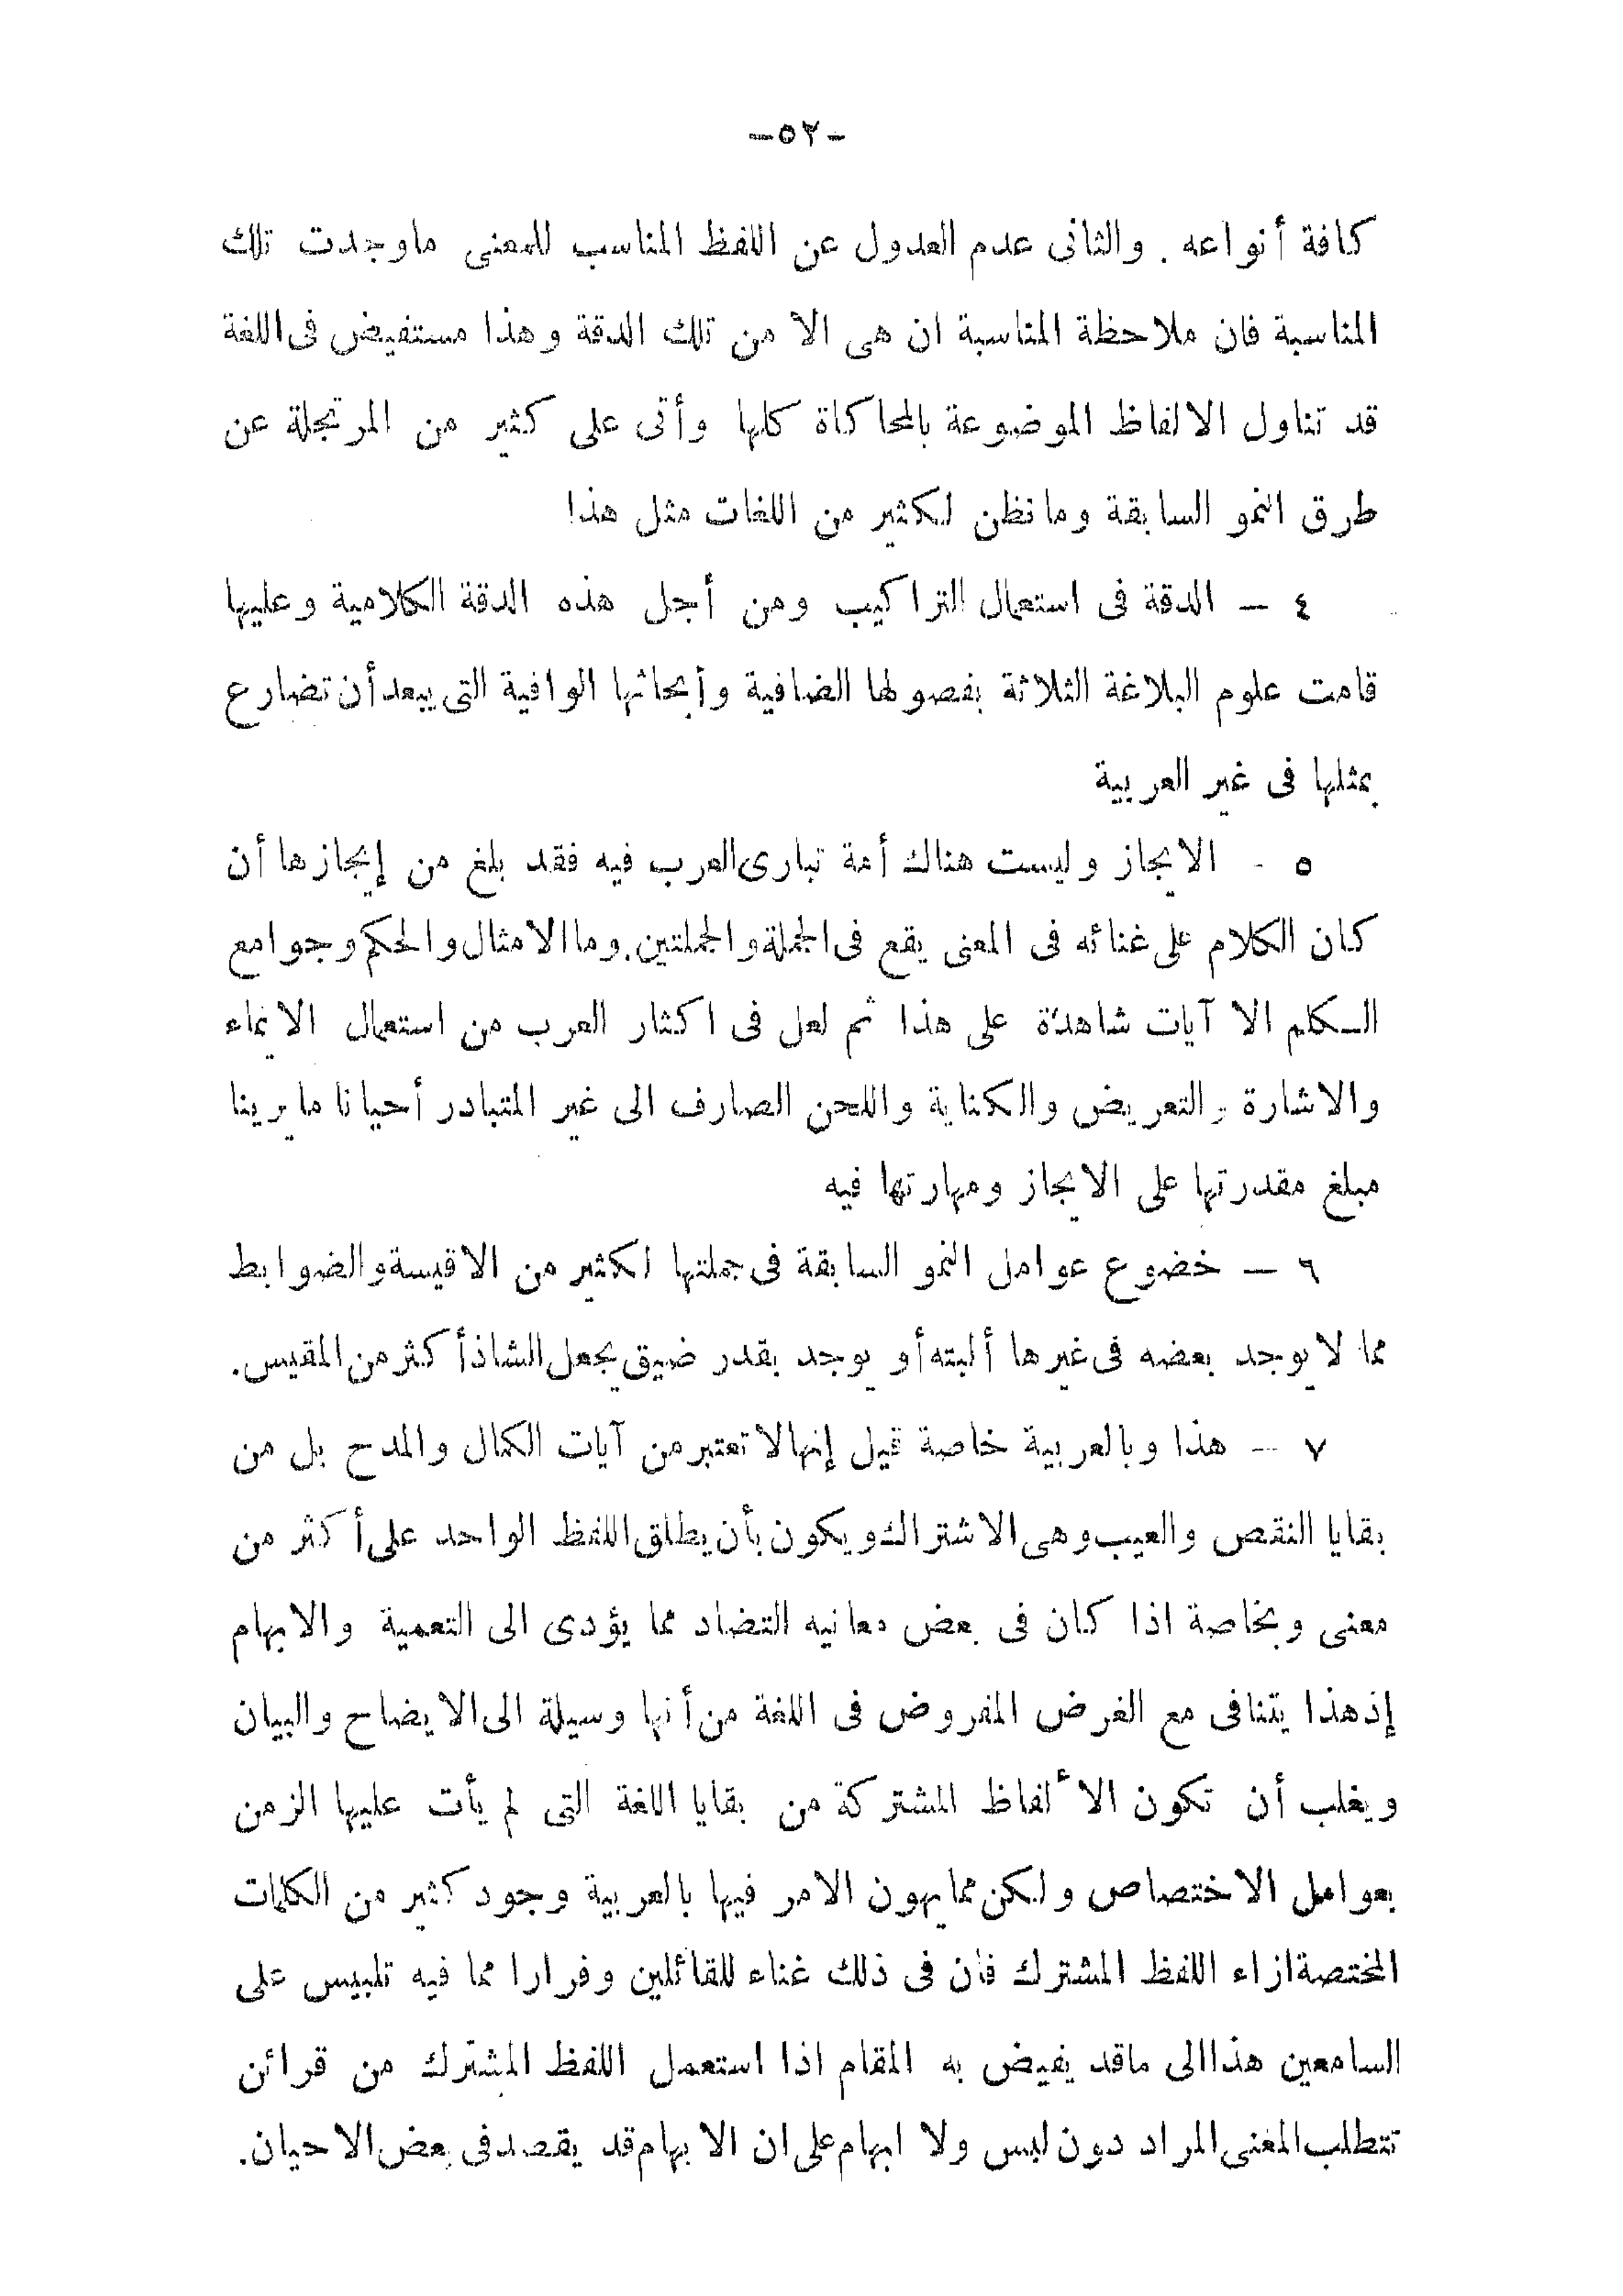 -٥٢-
كافة أنواعه. والثانى عدم العدول عن اللفظ المناسب للمعنى ماوجدت تلك
المناسبة فان ملاحظة المناسبة ان هى الا من تلك الدقة وهذا مستفيض فى اللغة
قد تناول الالفاظ الموضوعة بالمحاكاة كلها وأتى على كثير من المرتجلة عن
طرق النمو السابقة وما نظن لكثير من اللغات مثل هذا
٤ — الدقة فى استعمال التراكيب ومن أجل هذه الدقة الكلامية وعليها
قامت علوم البلاغة الثلاثة بفصولها الضافية وأبحاثها الوافية التى يبعد أن تضارع
بمثلها فى غير العربية
٥ - الايجاز وليست هناك أمة تبارى العرب فيه فقد بلغ من إيجازها أن
كان الكلام على غنائه فى المعنى يقع فى الجملة والجملتين. وما الامثال والحكم وجوامع
الكلم الا آيات شاهدة على هذا ثم لعل فى اكثار العرب من استعمال الايماء
والاشارة والتعريض والكناية واللحن الصارف الى غير المتبادر أحيانا ما يرينا
مبلغ مقدرتها على الايجاز ومهارتها فيه
٦ — خضوع عوامل النمو السابقة فى جملتها لكثير من الاقيسة والضوابط
مما لا يوجد بعضه فى غيرها ألبته أو يوجد بقدر ضيق يجعل الشاذ أكثر من المقيس.
٧ — هذا وبالعربية خاصة قيل إنها لا تعتبر من آيات الكمال والمدح بل من
بقايا النقص والعيب وهى الاشتراك ويكون بأن يطلق اللفظ الواحد على أكثر من
معنى وبخاصة اذا كان فى بعض معانيه التضاد مما يؤدى الى التعمية والابهام
إذ هذا يتنافى مع الغرض المفروض فى اللغة من أنها وسيلة الى الايضاح والبيان
ويغلب أن تكون الألفاظ المشتركة من بقايا اللغة التى لم يأت عليها الزمن
بعوامل الاختصاص ولكن مما يهون الامر فيها بالعربية وجود كثير من الكلمات
المختصة ازاء اللفظ المشترك فان فى ذلك غناء للقائلين وفرارا مما فيه تلبيس على
السامعين هذا الى ماقد يفيض به المقام اذا استعمل اللفظ المشترك من قرائن
تتطلب المعنى المراد دون لبس ولا ابهام على ان الابهام قد يقصد فى بعض الاحيان.